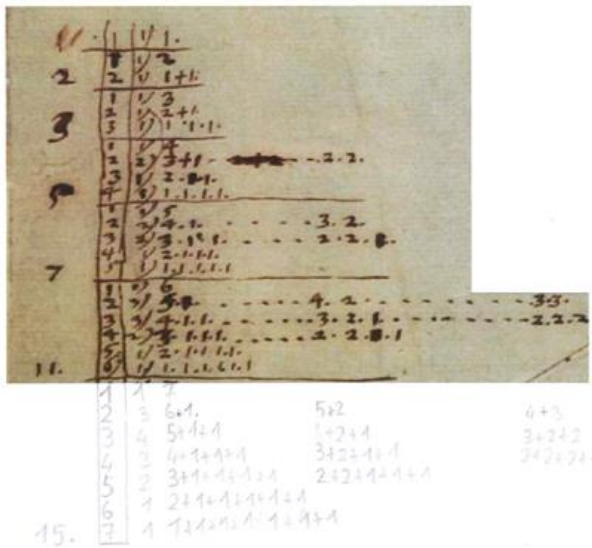 1 1) 1.
1) 2
2 2 1) 1+1.
1 1) 3
2 1) 2+1.
3 3 1) 1.1.1.
1 1) 4
2 2) 3+1 - - - - 2.2.
3 1) 2.1.
5 4 1) 1.1.1.1.
1 1) 5
2 2) 4.1. - - - - - - 3.2.
3 2) 3.1.1. - - - - - - 2.2.
4 1) 2.1.1.1.
7 5 1) 1.1.1.1.1
1 6
2 3) 5. - - - - - - 4.2 - - - - - - 3.3.
3 3) 4.1.1. - - - - - - 3.2.1. - - - - - - 2.2.2
4 1.1.1. - - - - - - 2.2.1
5 1) 2.1.1.1.1.
11. 6 1) 1.1.1.1.1
1 1 7
2 3 6+1. 5+2 4+3
3 4 5+1+1 +2+1 3+2+2
4 3 4+1+1+1 3+2+1+1 2+2+2+
5 2 3+1+1+1+1 2+2+1+1+1
6 1 2+1+1+1+1+1
15. 7 1 1+1+1+1+1+1+1